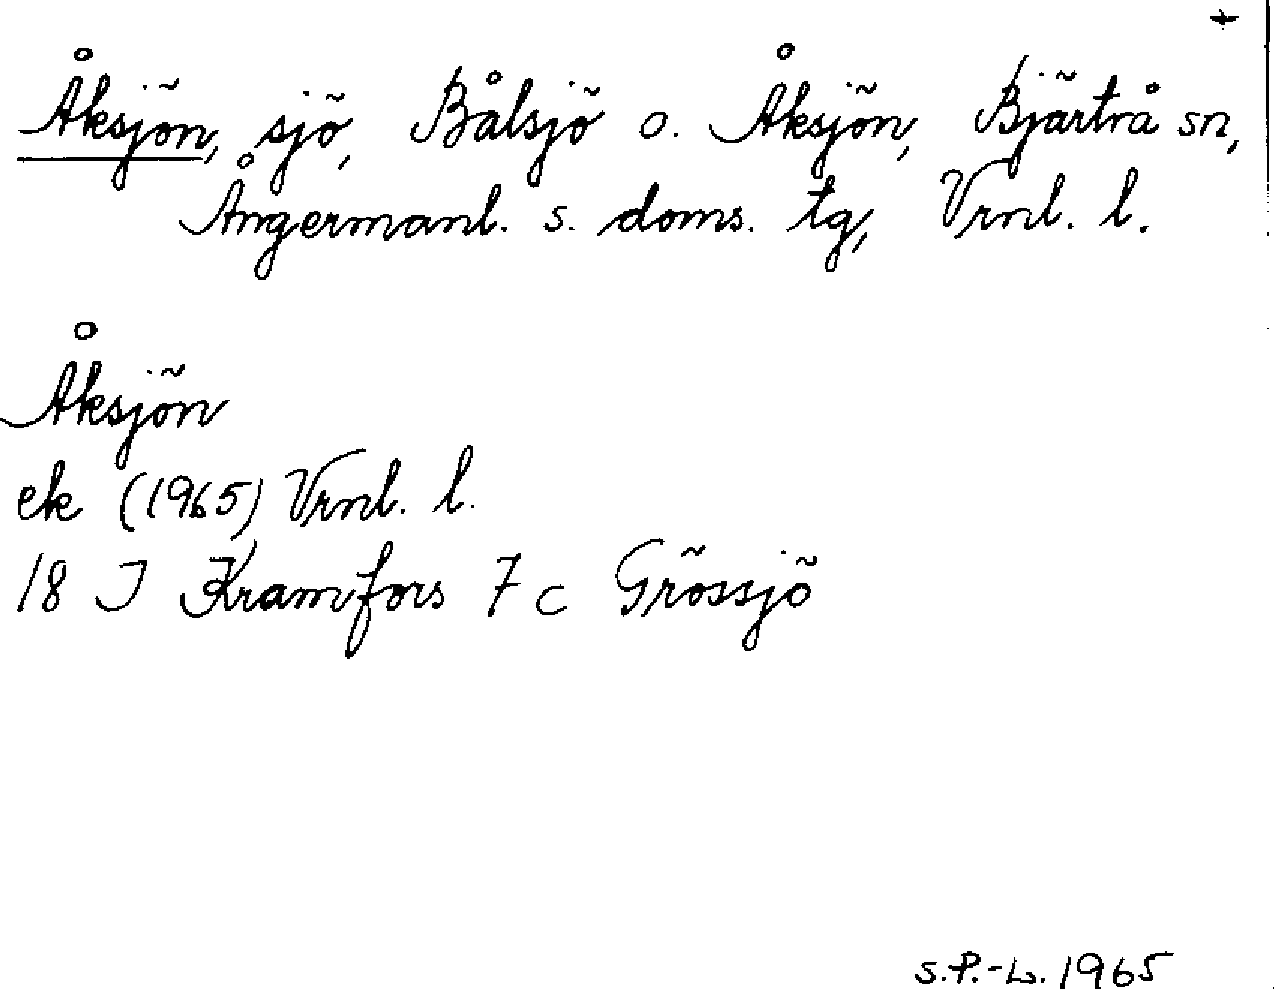 +
Åksjön, sjö, Bålsjö o. Åksjön, Bjärtrå sn,
Ångermanl. s. doms. tg, Vrnl. l.
Åksjön
ek (1965) Vrnl. l.
18 J Kramfors 7 c Grössjö
S.P.-L. 1965